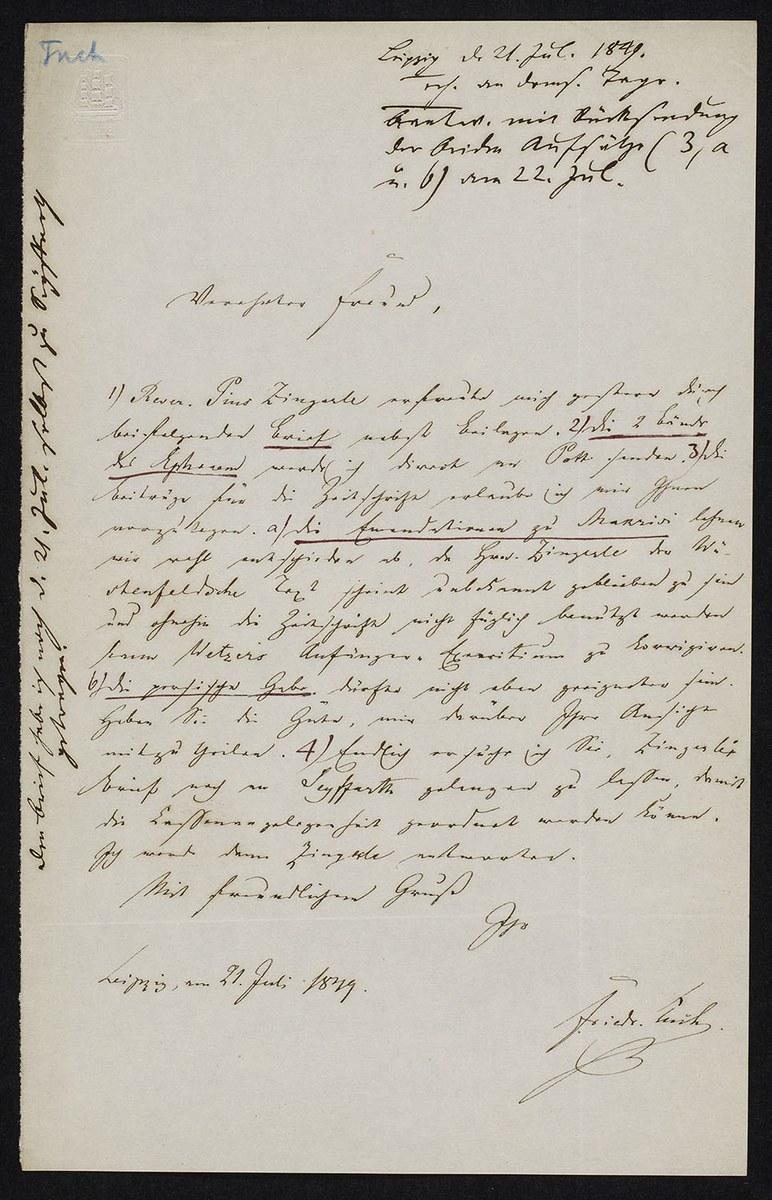 Tuch
Leipzig d. 21. Jul. 1849.
erh. an dems. Tage.
beantw. mit Rücksendung
der beiden Aufsätze (3, a
u. b) am 22. Jul.
Verehrter Freund,
1) Rever. Pius Zingerle erfreute mich gestern durch
beifolgenden Brief nebst Beilagen. 2) die 2 Bände
des Ephraem werde ich direct an Pott senden. 3) die
Beiträge für die Zeitschrift erlaube ich mir Ihnen
vorzulegen. a) die Emendationen zu Makrizi lehnen
wir wohl entschieden ab, da Hrn. Zingerle der Wü-
stenfeldsche Text scheint unbekannt geblieben zu sein
und ohnehin die Zeitschrift nicht füglich benutzt werden
kann Wetzer's Anfänger-Exercitium zu korrigiren.
b) die persische Gabe dürfte nicht eben geeigneter sein.
Haben Sie die Güte, mir darüber Ihre Ansicht
mitzutheilen. 4) Endlich ersuche ich Sie, Zingerle's
Brief noch an Seyffarth gelangen zu lassen, damit
die Cassenangelegenheit geordnet werden könne.
Ich werde dann Zingerle antworten.
Mit freundlichem Gruß
Ihr
Leipzig, am 21. Juli 1849.
Friedr. Tuch.
Den Brief habe ich noch d. 21. Jul. selbst zu Seyffarth